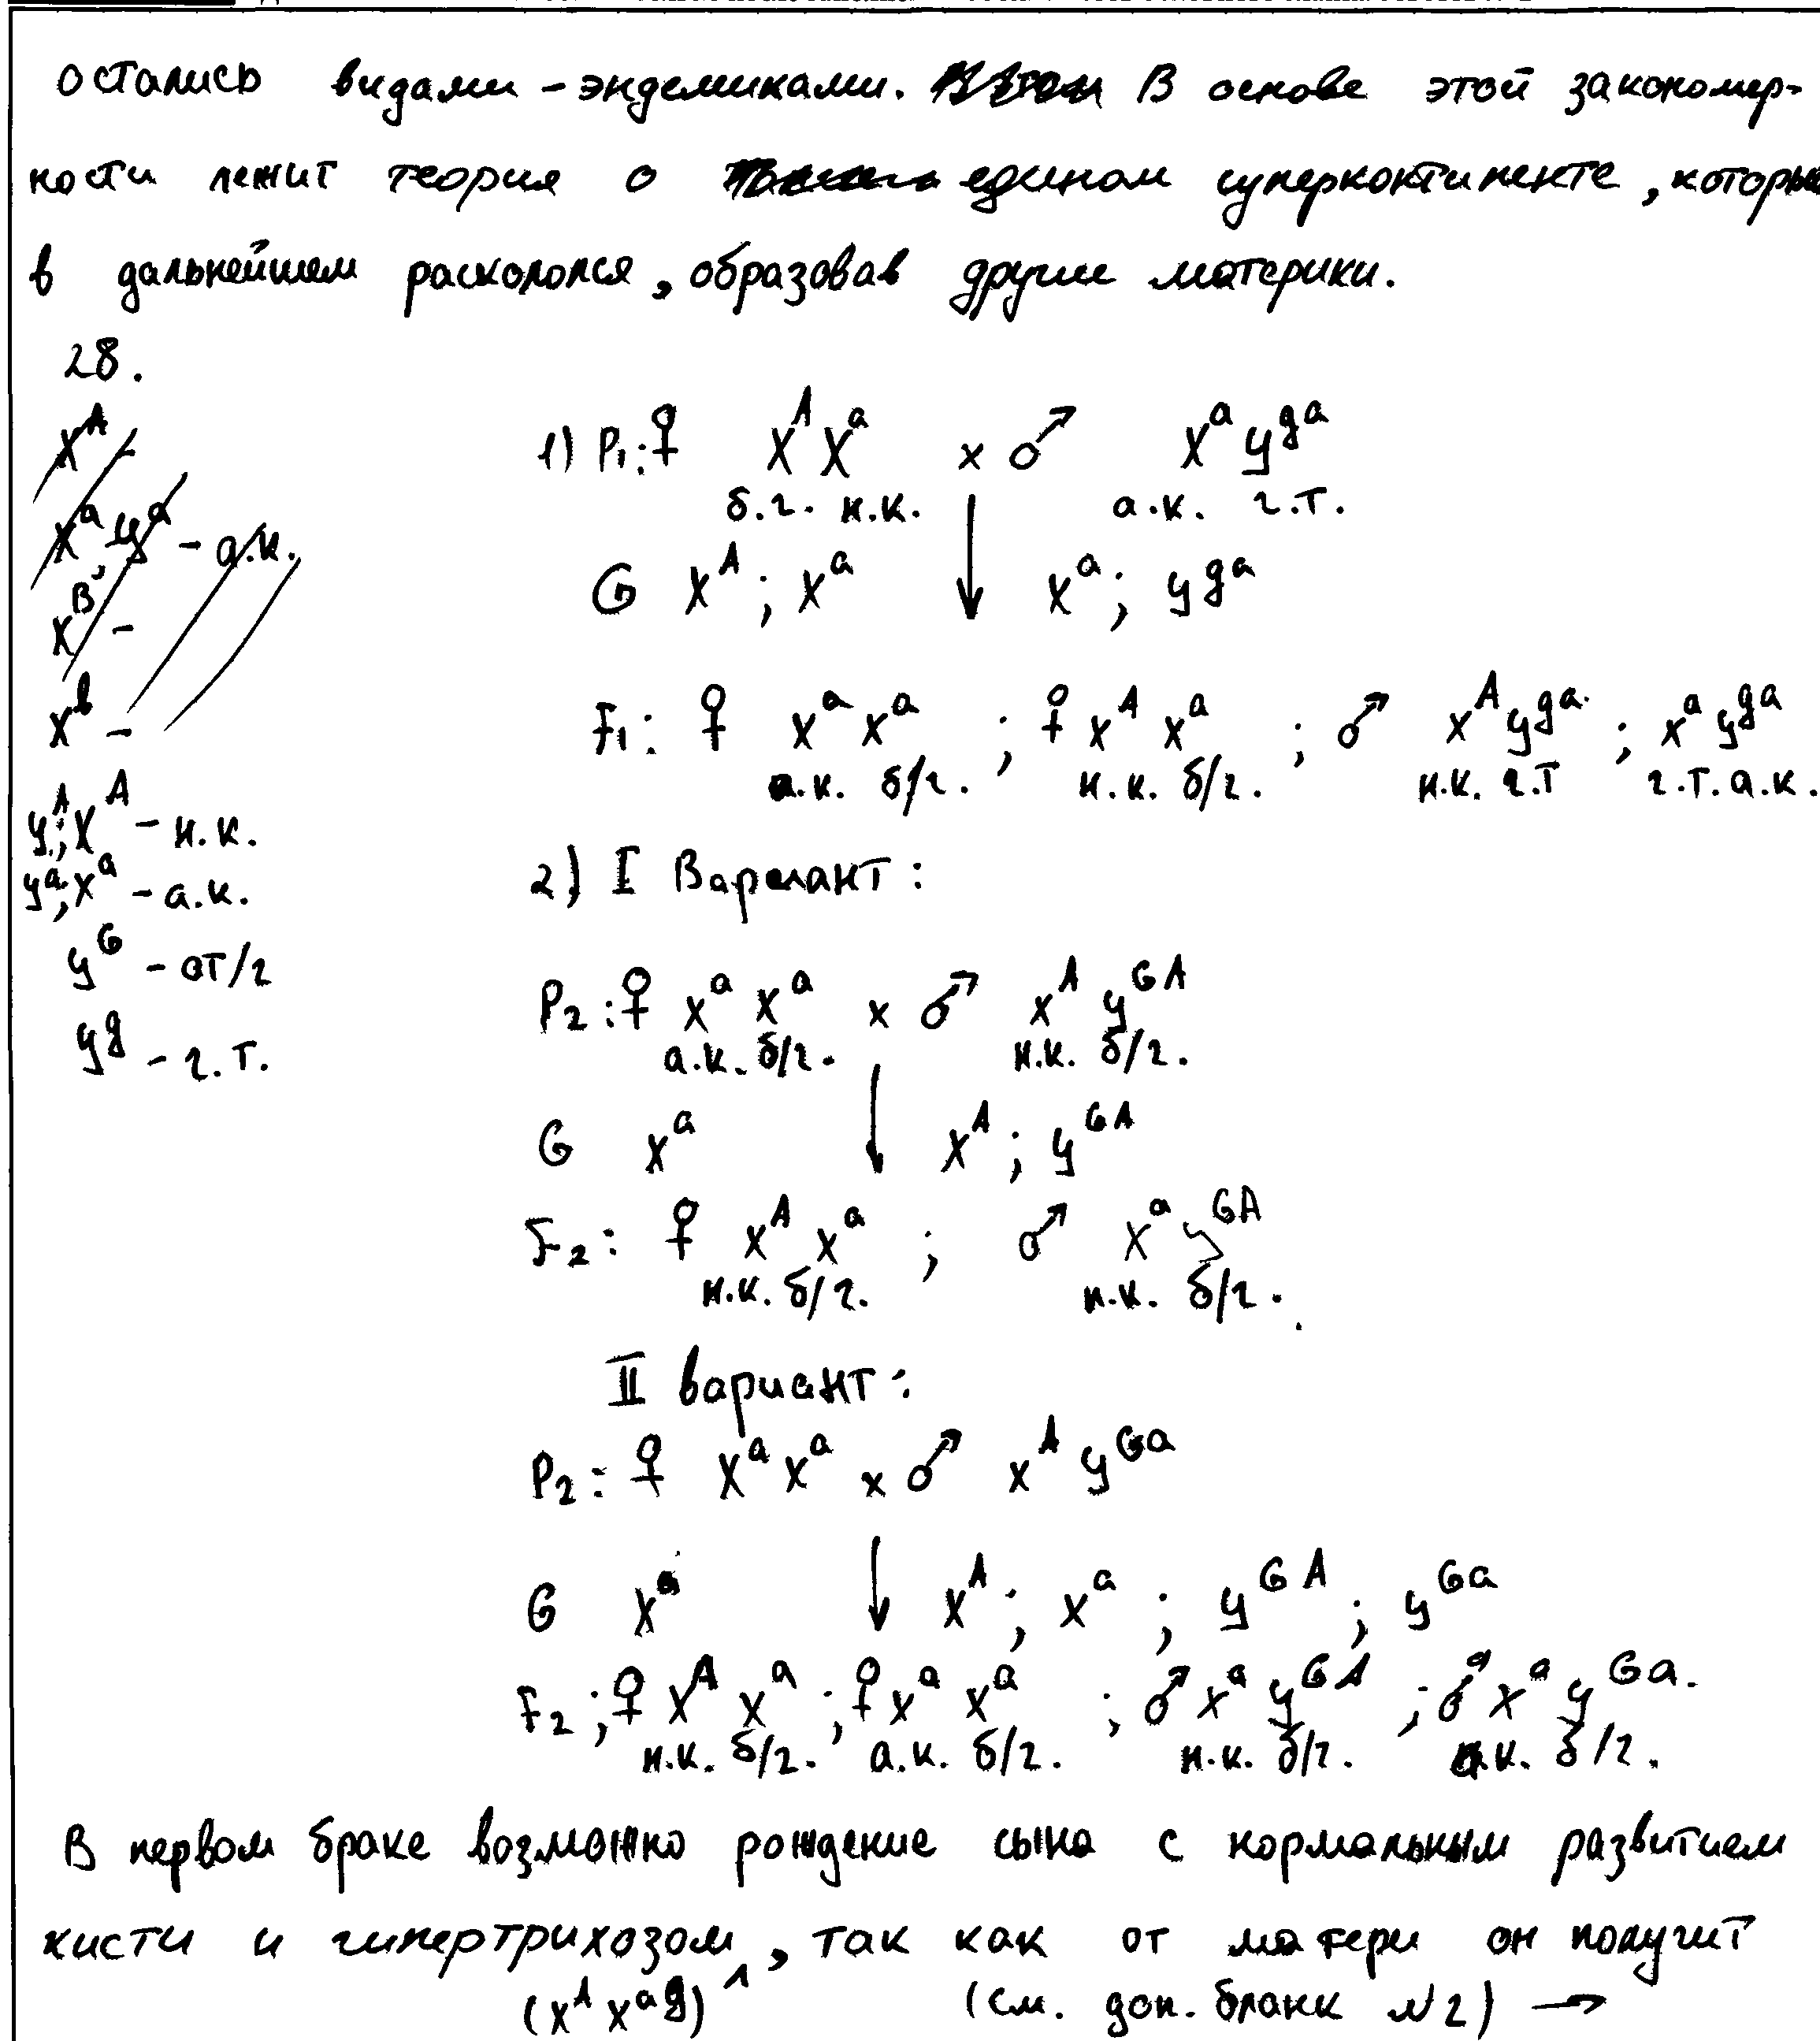 остались видами-эндемиками. В основе этой закономер-
ности лежит теория о едином суперконтиненте, который
в дальнейшем раскололся, образовав другие материки.
28.
X^A -
X^a, y^a - а.к.
X^B -
X^b -
y^A; X^A - н.к.
y^a; X^a - а.к.
y^G - от/г
y^g - г.т.
1) P₁: ♀ X^A X^a x ♂ X^a y^ga
б.г. н.к. а.к. г.т.
G X^A; X^a X^a; y^ga
F₁: ♀ X^a X^a ; ♀ X^A X^a ; ♂ X^A y^ga ; X^a y^ga
а.к. б/г. н.к. б/г. н.к. г.т г.т. а.к.
2) I Вариант:
P₂: ♀ X^a X^a x ♂ X^A y^GA
а.к. б/г. н.к. б/г.
G X^a X^A; y^GA
F₂: ♀ X^A X^a ; ♂ X^a y^GA
н.к. б/г. н.к. б/г.
II вариант:
P₂: ♀ X^a X^a x ♂ X^A y^Ga
G X^a X^A; X^a; y^GA; y^Ga
F₂; ♀ X^A X^a; ♀ X^a X^a ; ♂ X^a y^GA ; ♂ X^a y^Ga.
н.к. б/г. а.к. б/г. н.к. б/г. а.к. б/г.
В первом браке возможно рождение сына с нормальным развитием
кисти и гипертрихозом, так как от матери он получит
(X^A X^ag) (см. доп. бланк №2) →